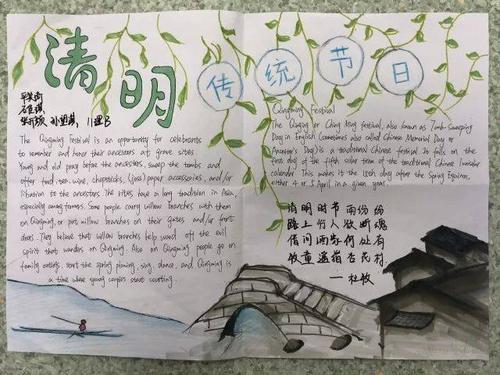 清明
传统节日
The Qingming Festival is an opportunity for celebrants
to remember and honor their ancestors at grave sites
Young and old pray before the ancestors, sweep the tombs and
offer food, tea, wine, chopsticks, (joss) paper accessories, and/or
libation to the ancestors. The rites have a long tradition in Asia,
especially among farmers. Some people carry willow branches with them
on Qingming, or put willow branches on their gates and/or front
doors. They believe that willow branches help ward off the evil
spirit that wanders on Qingming. Also on Qingming people go on
family outings, start the spring plowing, sing, dance, and Qingming is
a time where young couples start courting.
Qingming Festival
The Qingming or Ching Ming festival, also known as Tomb Sweeping
Day in English (sometimes also called Chinese Memorial Day or
Ancestor's Day) is a traditional Chinese festival. It falls on the
first day of the fifth solar term of the traditional Chinese lunisolar
calendar. This makes it the 15th day after the Spring Equinox,
either 4 or 5 April in a given year
清明时节雨纷纷
路上行人欲断魂
借问酒家何处有
牧童遥指杏花村
——杜牧